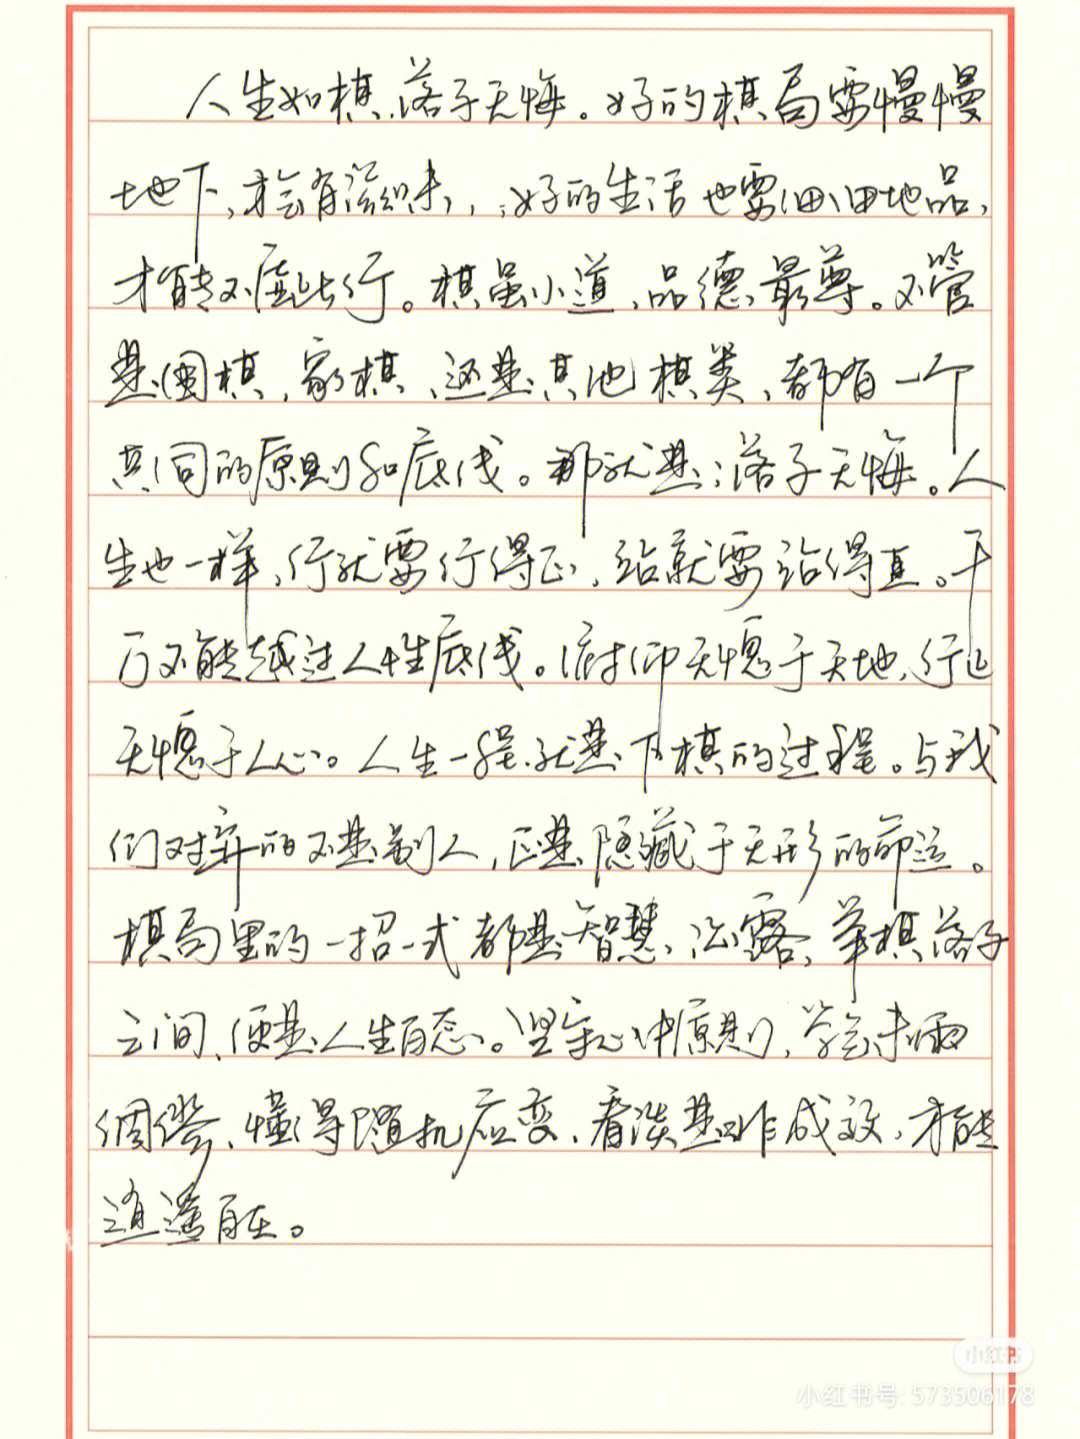 人生如棋,落子无悔。好的棋局要慢慢
地下,才会有滋味,好的生活也要细细地品,
才能不虚此行。棋虽小道,品德最尊。不管
是围棋,象棋,还是其他棋类,都有一个
共同的原则和底线。那就是:落子无悔。人
生也一样,行就要行得正,站就要站得直。千
万不能越过人性底线。俯仰无愧于天地,行止
无愧于人心。人生一程,就是下棋的过程。与我
们对弈的不是别人,正是隐藏于无形的命运。
棋局里的一招一式都是智慧流露,举棋落子
之间,便是人生百态。坚守心中原则,学会未雨
绸缪,懂得随机应变,看淡是非成败,才能
逍遥自在。
小红书
小红书号: 573506178